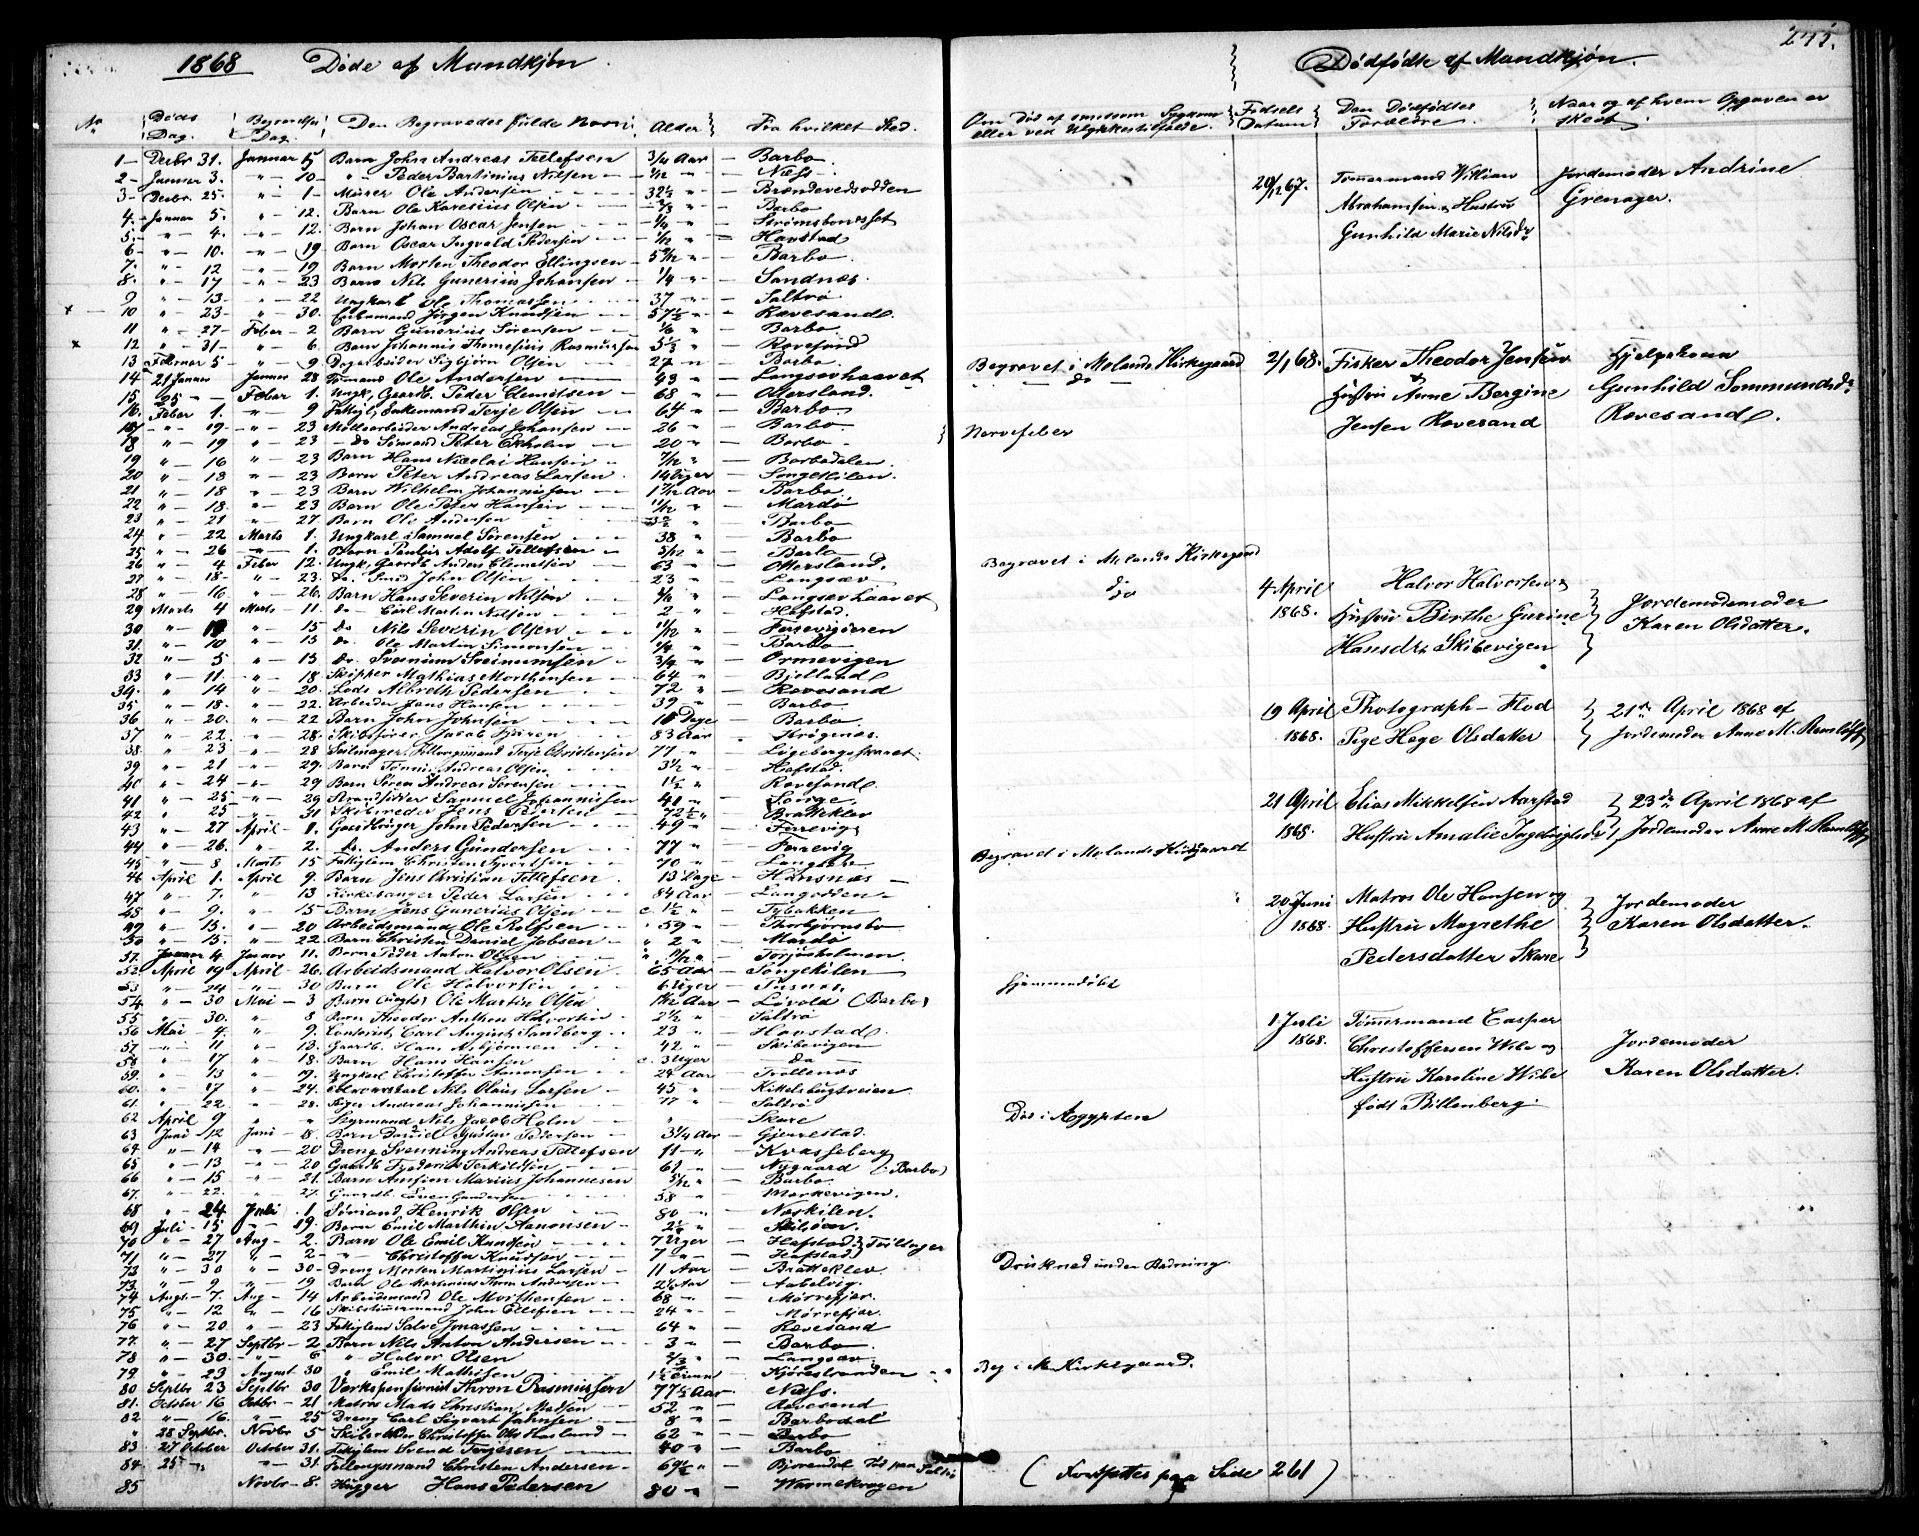 245.
1868 Døde af Mandkjøn.
No Døds Dag. Begravelses Dag. Den Begravedes fulde Navn Alder Fra hvilket Sted.
1 – Decbr 31. Januar 5 Barn John Andreas Tellefsen 3/4 Aar – Barbo
2 – Januar 3. " – 10 – " – Peder Bartinius Nilsen – 1/12 " – Næss
3 – Decbr 25. " – 1 – Murer Ole Andersen 32½ " – Brændevedsodden
4. Januar 5. " – 12. Barn Ole Karesius Olsen – 2/3 " – Barbo
5. " – 4. " – 12. Barn Johan Oscar Jensen – 1/4 " – Strømsbonesset
6 – " – 10. " – 19 Barn Oscar Ingvald Pedersen – 1/12 " – Havstad
7. " – 12 – " – 19 Barn Morten Theodor Ellingsen – " – Barbo
8. " – 17 – " – 23 Barn Nils Gunerius Johansen – 1/4 " – Sandnæs.
9 " – 13 – " – 22 Ungkarl Ole Thomassen 37 – Saltrø
x – 10 " – 23 – " – 30. Enkemand Jörgen Knudsen – 57½ – Rævesand.
11 " – 27 – Feber – 2 Barn Gunerius Sörensen – 1/6 " – Barbo
x 12 " – 31 – " – 6. Barn Johannis Themesius Rasmussen – Rævesand
13 Februar 5 – " – 9 Sigbjørn Olsen – 27 – Barbo
14 – 21 Januar Januar 28 Ole Andersen – 43 – Langsævhaavet
15 25 – Febar 1. Ungk, Gaardb. Peder Clemetsen – 68 – Ottersland.
16. Febar 1. " – 9 Fattigl, Enkemand Terje Olsen – 64 – Barbo
" – 19 – " – 23 Andreas Johansen – 26 – Barbo
18 " – 19 " – 23 – do Sømand Peter Ekholm – 20 – Barbo
19 " – 16 " – 23 Barn Hans Nicolai Hansen – 7/12 " – Barbodalen
20 " – 18 " – 23 Barn Peter Andreas Larsen – 14 Uger – Songekilen.
21 " – 18 " – 23 Barn Wilhelm Johannissen – Aar – Barbo.
22 " – 18. " – 23 Barn Ole Peter Hansen – 11/12 " – Mardø
23 " – 21 " – 27. Barn Ole Andersen " – Barbo
24 " – 22 Marts 1. Ungkarl Samuel Sörensen – 38 " – Barbo
25 " – 26 – " – 1. Barn Paulus Adolf Tellefsen – 5/12 " – Barbo
26 " – 4 Febar 12. Ungk, Gaardb Anders Clemetsen – 63 " – Ottersland.
27 " – 18 – " – 23. do. Smed John Olsen – 23 " – Langsæv
28 " – 16 " – 26. Barn Hans Severin Nilsen " – Langsævhaavet
29 Marts 4 Marts – 11. do – Carl Martin Nilsen – 2 – " – Hafstad.
30 " – " – 15 do Nils Severin Olsen – 11/12 " – Fersevigøeren
31. " – 10 " – 15 do. Ole Martin Simonsen – " – Barbo
32 " – 5 " – 13 do. Sveinum Sveinumsen – 3/4 " – Ormevigen
33 " – 11. " – 18 Skipper Mathias Morthensen – 64 " – Bjelland
34. " – 14 " – 20. Lods Albreth Pedersen – 72 " – Rævesand
35 " – 18. " – 22. Arbeider Jens Hansen – 39 " – Barbo
36 " – 20. " – 22 Barn John Johnsen – Dage – Barbo
37 " – 22. " – 28. Skibsfører Jacob Fjæren – 83 Aar – Krögenæs.
38. " – 23 " – 28 Seilmager, Terje Christensen 77 " – Løgebergsvaret.
39 " – 21 " – 29. Barn Tönnis Andreas Olsen 3½ " – Hafstad.
40 " – 24 – " – 29 Barn Søren Andreas Sörensen – 1½ " – Rævesand
41 " – 25 – " – 29 Strandsidder Samuel Johannissen 41 – Songe.
42 " – 25 " – 31 Jens Petersen – 72½ " – Bratteklev
43 " – 27 April – 1. Gaardbruger John Pedersen – 49 " – Fervevig
44 " – 26. " – 2. do. Anders Gundersen – 77 " – Ferrevig
45 " – 8 Marts 15 Fattiglem Christen Syvertsen – 70 " – Langsæv
46 April 1. April 9. Barn Jens Christian Tellefsen. 13 Dage – Hansnæs –
47 " – 7. " – 13 Kirkesanger Peder Larsen – 84 Aar – Langodden –
48 " – 9. " – 15 Barn Jens Gunerius Olsen – c. 1½ " – Tybakken
49 " – 15. " – 20 Arbeidsmand Ole Rolfsen – 59 " – Thorbjørnsbo
50 " – 15. " – 22 Barn Christen Daniel Jobsen – 2 " – Mardø
51. Januar 4. Januar 11. Barn Peder Anton Olsen – " – Torjusholmen.
52. April 19 April – 26. Arbeidsmand Halvor Olsen. 65 Aar – Songekilen
53 " – 24 " – 30 Barn Ole Halvorsen – 6 Uger – Tusnæs.
54. " – 30 Mai – 3 Barn (uægte) Ole Martin Olsen Aar – Løvold (Barbo)
55 " – 30. " – 8 Barn Theodor Anthon Halvorsen – 2½ " – Saltrø
56 Mai – 4. " – 9. Contorist, Carl August Sandberg – 23 " – Havstad.
57 – " – 11 " – 13. Gaardb. Hans Asbjörnsen – 42 " – Skibevigen
58 " – 17 " – 18. Barn Hans Hansen c. 3 Uger – do –
59. " – 13 " – 19. Ungkarl Christoffer Simonsen – 24 Aar – Trollenæs
60. " – 17 " – 24. Nils Olaus Larsen – 45 " – Kittelsbugtveien
61 " – 22. " – 28. Andreas Johannisen 77 " – Saltrø
62 April 9 " " Styrmand Nils Jacob Holm – " – Skare
63 Juni 12 Juni – 18. Barn Daniel Gustav Pedersen – 3¼ Aar – Gjennestad.
64 " – 14 – " – 20 Dreng Svenning Andreas Tellefsen 11 – " – Kvasseberg
65 " – 13 " – 20 Gaardb Frederik Terkildsen – 61 " – Nygaard (Barbo)
66 " – 15 " – 21. Barn Amsion Marius Johannesen 5/12 " – Barbo
67. " – 22. " – 27. Gaardb. Even Gundersen – 58 – Markevigen.
68 " – 24 Juli 1. Sømand, Henrik Olsen – 80 " – Næskilen.
69 Juli – 15 " – 19. Barn Emil Marthin Aanonsen – 2½ " – Skilsøen.
70 " – 27 Aug – 2. Barn Ole Emil Knudsen 7 Uger – Hafstad } Tvillinger
71 " – 27 " – 2 – " – Christoffer Knudsen – 7 " – Hafstad }
72 " – 30 " – 30 – Dreng Morten Martinius Larsen – 11 Aar – Bratteklev
73 " – 9 – " – 19 Barn Ole Martinius Thron Andersen – Aar – Aabelvig.
74 Augt – 7. Aug – 14 Arbeidsmand Ole Morthensen – 68 " – Mörrefjær.
75 " – 12 " – 16 Skibstømmermand John Ellefsen – 24 " – Mørrefjær.
76 " – 20 " – 23 Fattiglem Salve Jonassen – 64 " – Rævesand
77. " – 27 Septbr – 2 Barn Nils Anton Andersen – 3 – " – Barbo
78 " – 30. – 6 " – Halvor Olsen 2/3 " – Langsæv.
79 " – 23 August 30 " Emil Mathisen – – Kjørestranden
80 Septbr 23 Septbr 30 Værkspensionist Thron Rasmussen 77½ Aar – Næss.
81. October 16 Octbr – 21 Matros Mads Christian Madsen – 52 " – Rævesand
82 " – 16. " – 25 Dreng Carl Sigvart Jahnsen – 8 " – Barbodal
" 28 Septbr. Novbr 5 Christoffer Otto Husland – 62 " – Barbo
83 27 October October 31. Fattiglem Svend Terjesen 40 " – Barbo
84. 25 – " – 31. Christen Andersen – 69½ " – Bjorendal Död paa Saltrø
85 Novbr – 8. Hugger Hans Pedersen 80 " – Warmekrogen
Dødfødte af Mandkjøn.
Om Død af smitsom Sygdom eller ved Ulykkestilfælde. Fødsels Datum Den Dødfødtes Forældre. Naar og af hvem Opgaven er skeet
20/12 67. Tömmermand Willian Jordemoder Andrine
Abrahamsen & Hustru Grenager.
Gunhild Marie Nilsdr
Begravet i Molands Kirkegaard 2/1 68. Fisker Theodor Jensen Hjelpekone
– do – & Hustru Anne Bergine Gunhild Sommundsdr
Jensen Rævesand Rævesand.
Nervefeber
Begravet i Molands Kirkegaard
do 4 April Halvor Halvorsen &
1868. Hustru Birthe Gurine Jordemodemoder
Hansdr. Skibevigen Karen Olsdatter.
19 April Photograph – Flod 21de April 1868 af
1868. Sige Hege Olsdatter Jordemoder Anne M. Ramsløff
21 April Elias Mikkelsen Aarstad 23de April 1868 af
1868. Hustru Amalie Ingebrigtsdr Jordemoder Anne M Ramsløff
Begravet i Molands Kirkegaard
20 Juni Matros Ole Hansen og Jordemoder
1868. Hustru Magrethe Karen Olsdatter.
Pedersdatter Skare
Hjemmedöbt
1. Juli Tömmermand Casper
1868. Christoffersen Wibe og Jordemoder
Hustru Karoline Wibe Karen Olsdatter.
født Billenberg.
Död i Ægypten
Druknet under Badning.
Beg i M. Kirkegaard.
(Fortsættes paa Side 261)